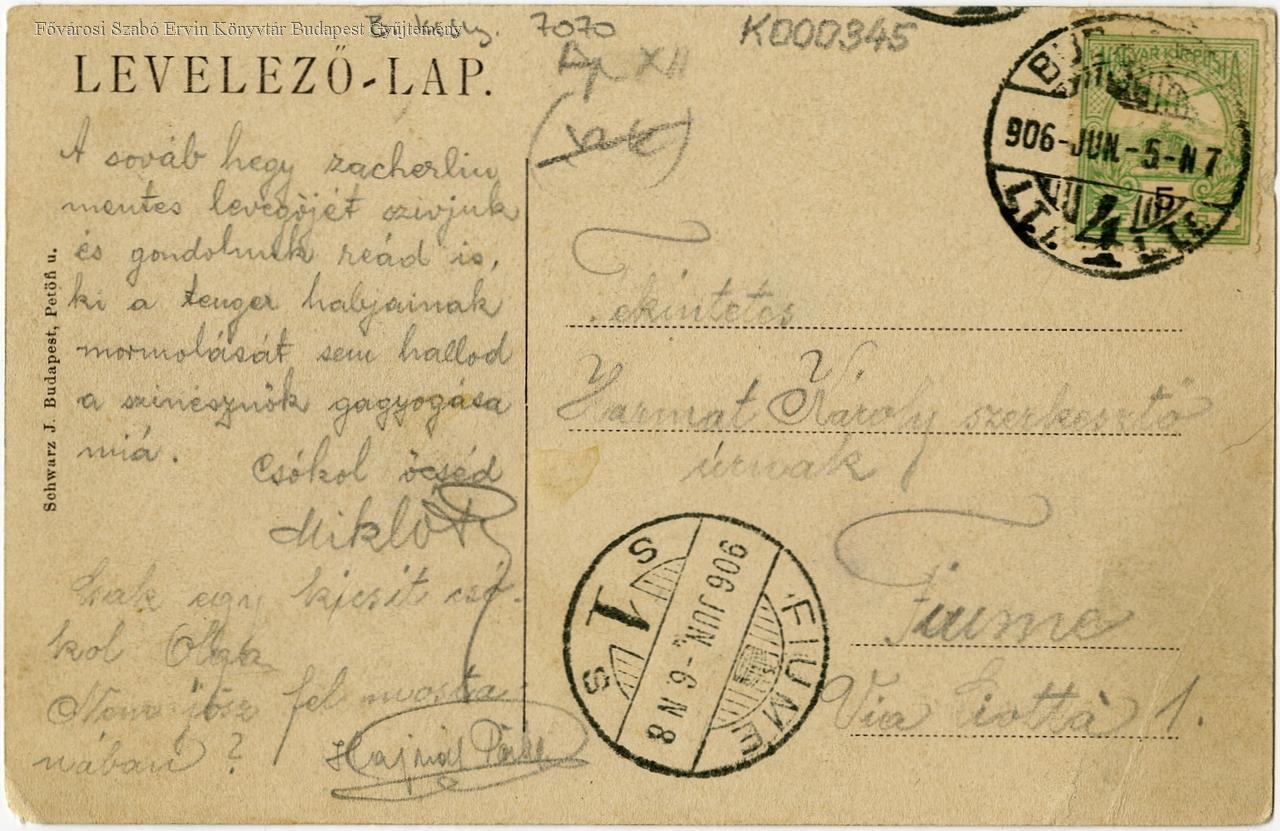 Fővárosi Szabó Ervin Könyvtár Budapest Gyűjtemény
7070
K000345
LEVELEZŐ-LAP.
A sováb hegy zacherlin
mentes levegőjét szivjuk
és gondolunk reád is,
ki a tenger halyainak
mormolását sem hallod
a szinésznők gagyogása
miá.
Csókol öcséd
Miklós
Csak egy kicsit csó-
kol Olga
Nem jösz fel mosta-
nában?
Hajnal
Schwarz J. Budapest, Petőfi u.
MAGYAR KIR. POSTA
5
BUD
906-JUN.-5-N7
4
Tekintetes
Harmat Károly szerkesztő
úrnak
Fiume
Via Ciotta 1.
FIUME
906 JUN.-6 N 8
S 1 S